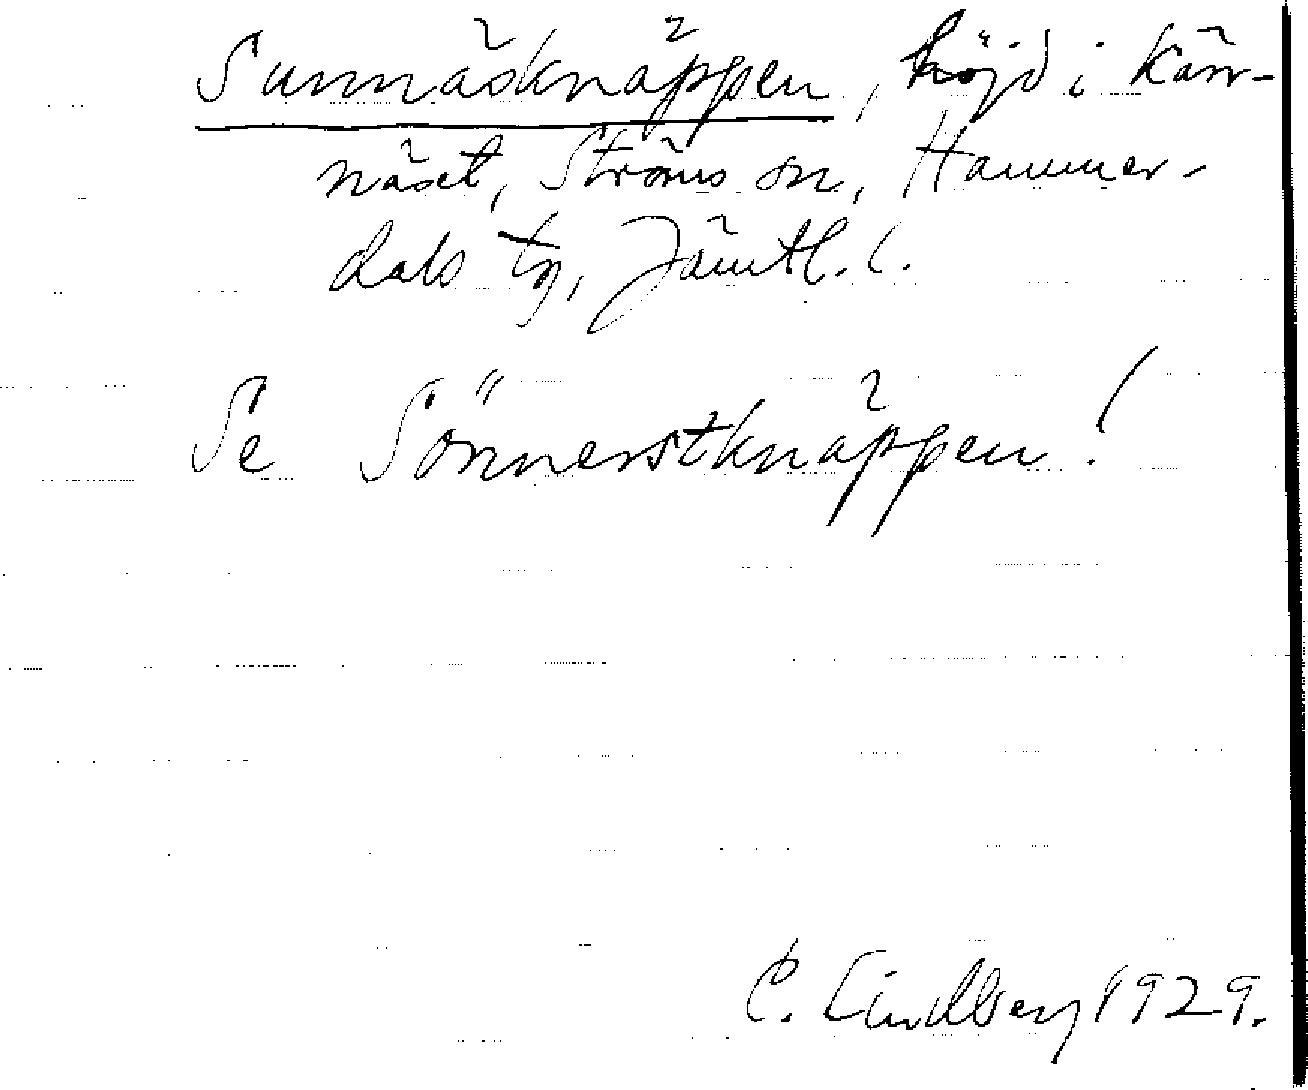 Sunnäsknäppen, höjd i Kärr-
näset, Ströms sn, Hammer-
dals tg, Jämtl. l.
Se Sönnerstknäppen!
C. Lindberg 1929.